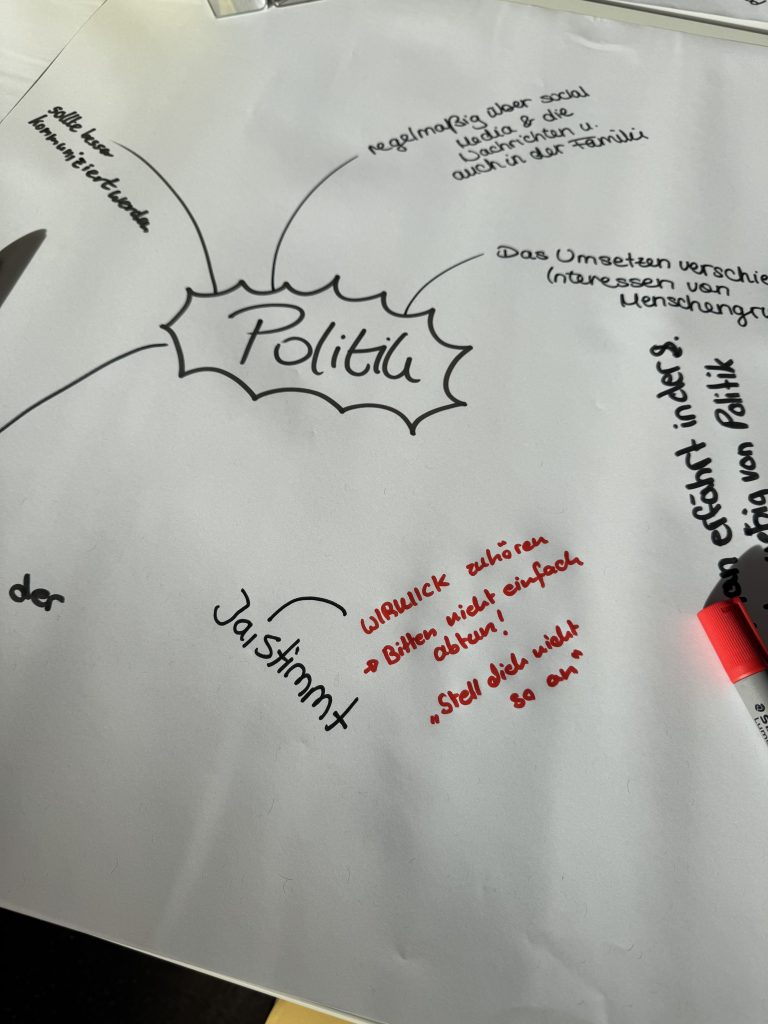 sollte besser
kommuniziert werden
regelmäßig über social
Media & die
Nachrichten u.
auch in der Familie
Das Umsetzen verschie
Interessen von
Menschengru
Politik
an erfährt in der 8.
von Politik
der
Ja, stimmt
WIRKLICK zuhören
→ Bitten nicht einfach
abtun!
„Stell dich nicht
so an"